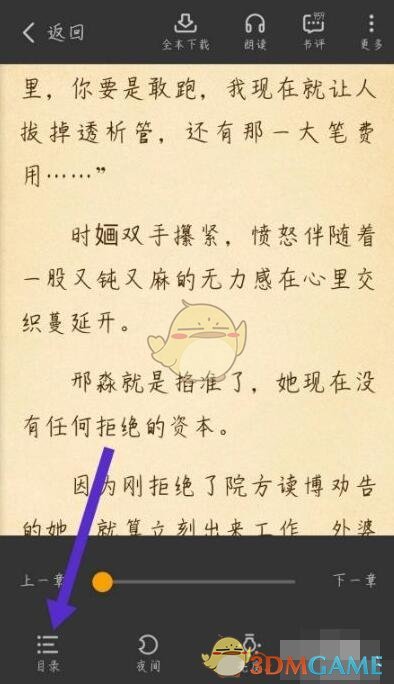 返回
全本下载
朗读
书评
更多
里，你要是敢跑，我现在就让人
拔掉透析管，还有那一大笔费
用……”
时婳双手攥紧，愤怒伴随着
一股又钝又麻的无力感在心里交
织蔓延开。
邢淼就是掐准了，她现在没
有任何拒绝的资本。
因为刚拒绝了院方读博劝告
的她，就算立刻出来工作，外婆
上一章
下一章
目录
夜间
3DMGAME